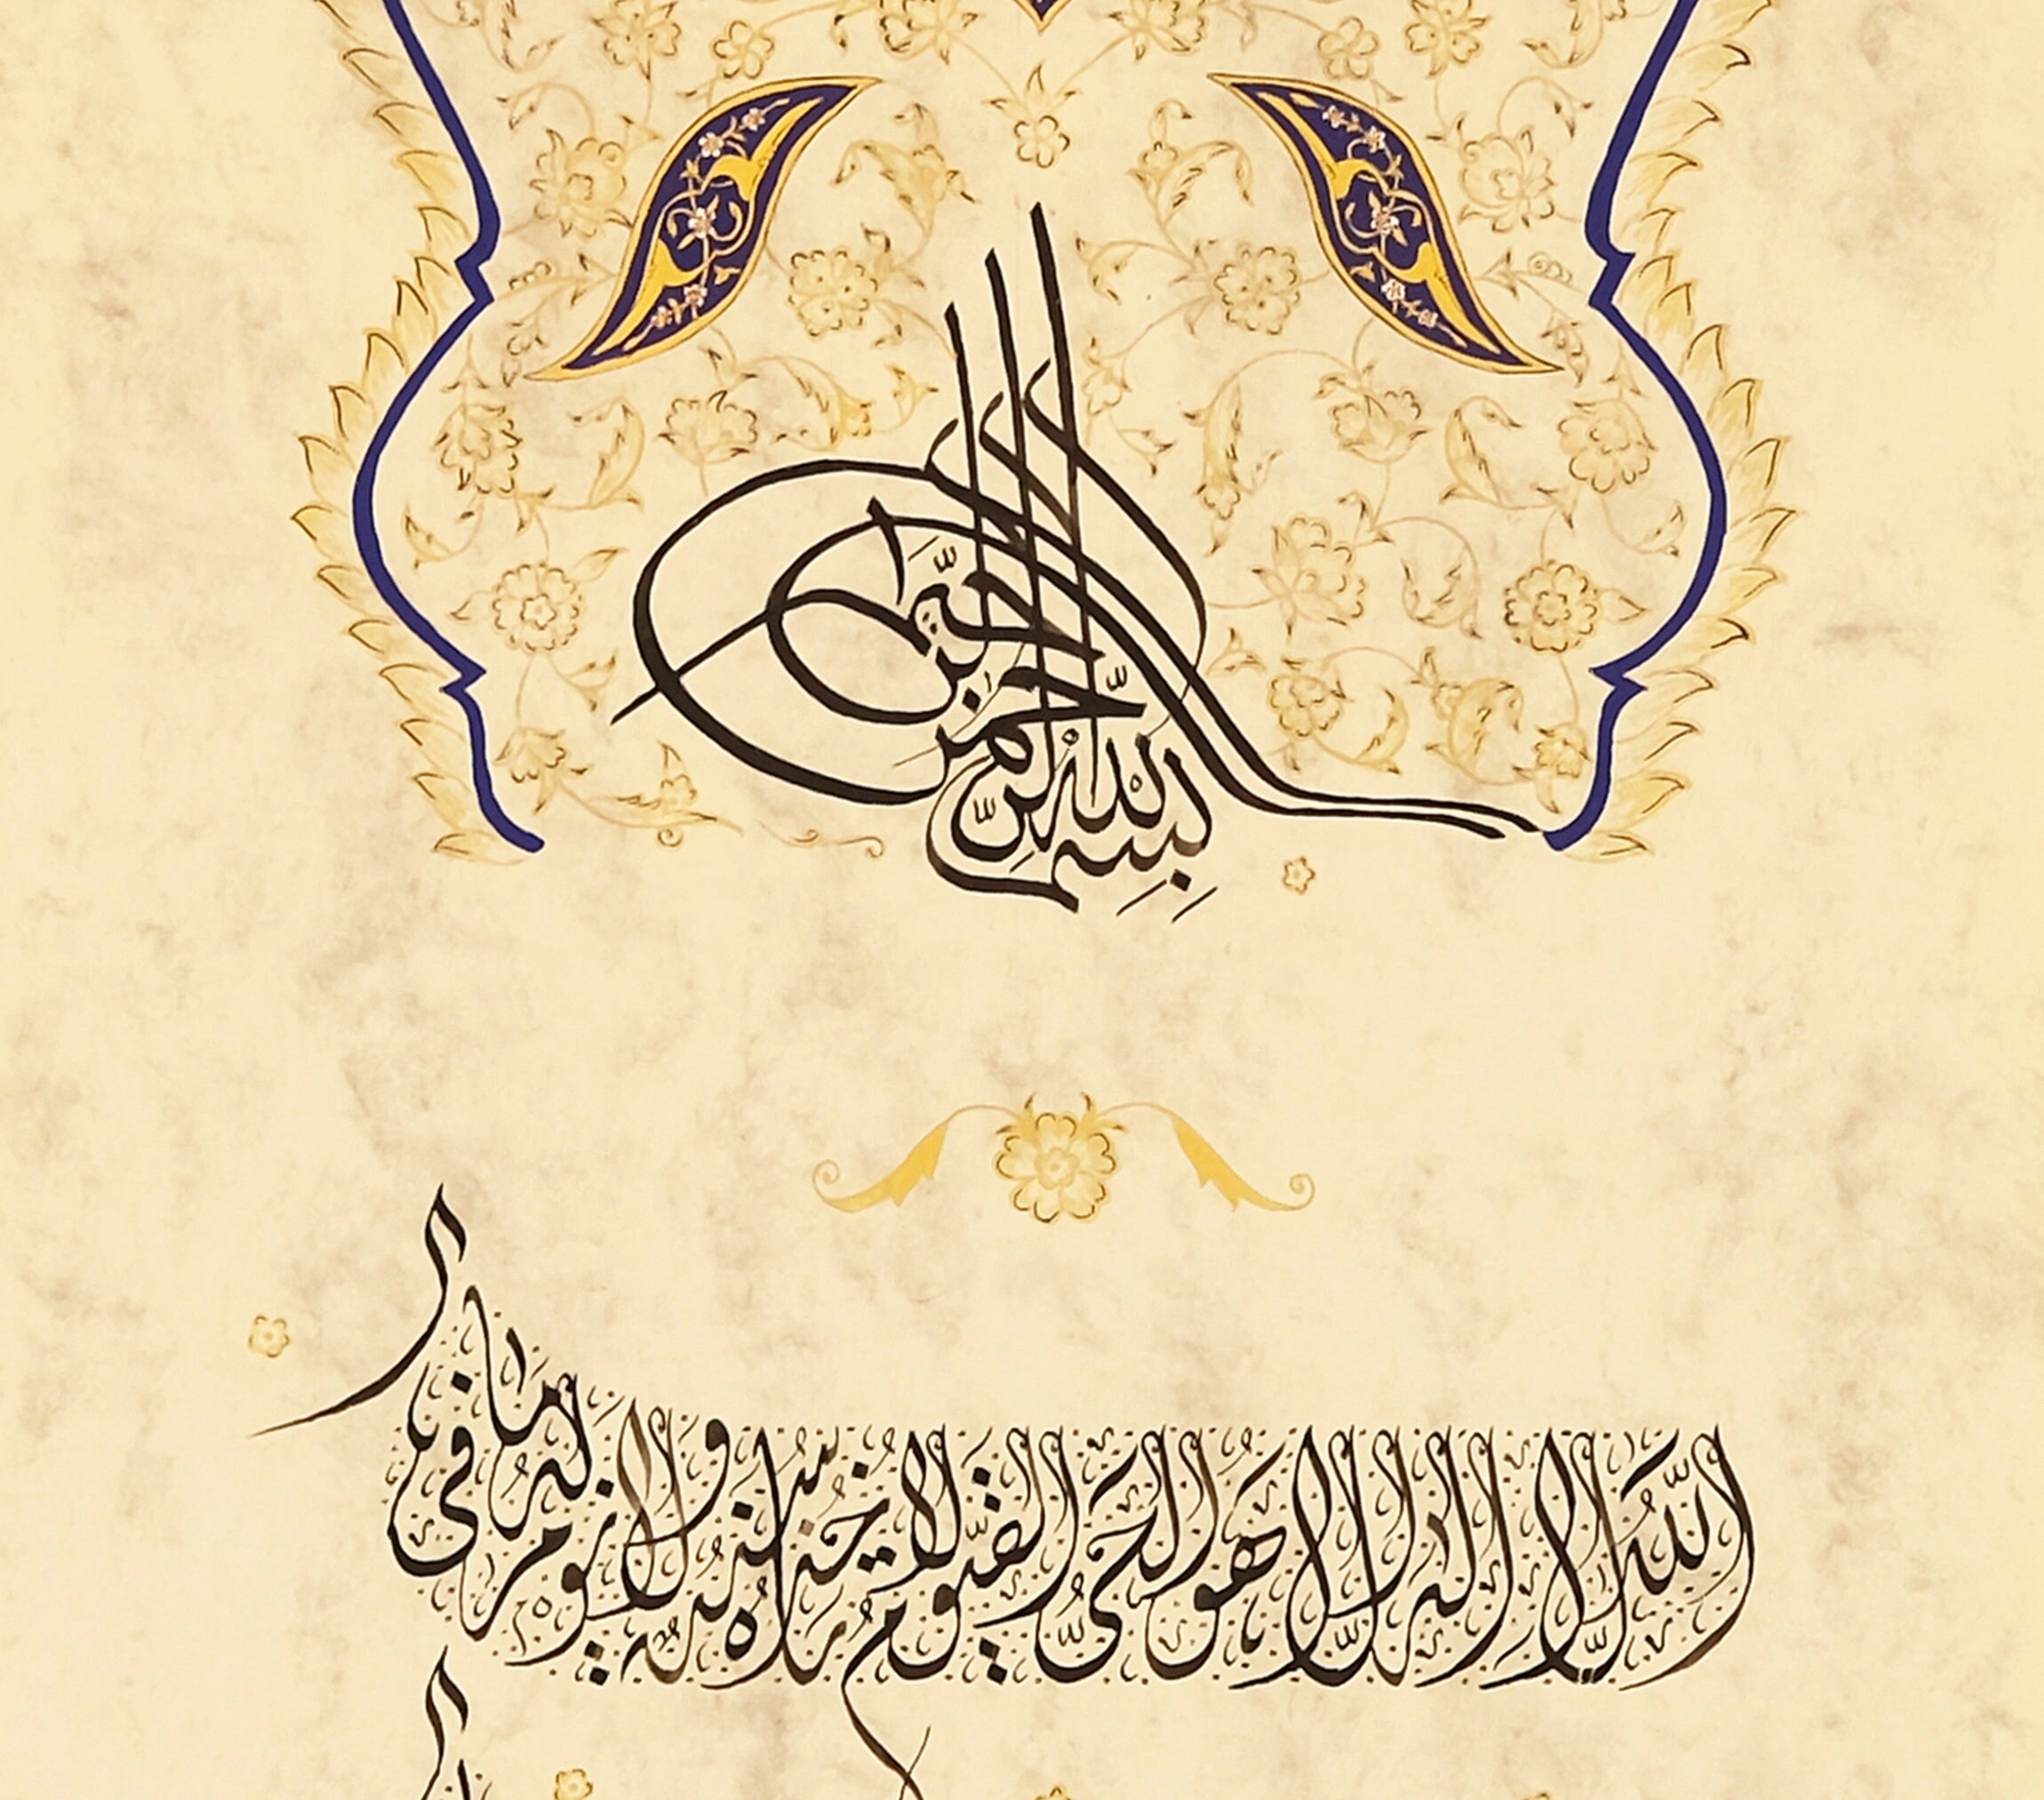 بِسْمِ اللّٰهِ الرَّحْمٰنِ الرَّحِيْمِ
اَللّٰهُ لَا اِلٰهَ اِلَّا هُوَ الْحَىُّ الْقَيُّومُ لَا تَأْخُذُهُ سِنَةٌ وَلَا نَوْمٌ لَهُ مَا فِى